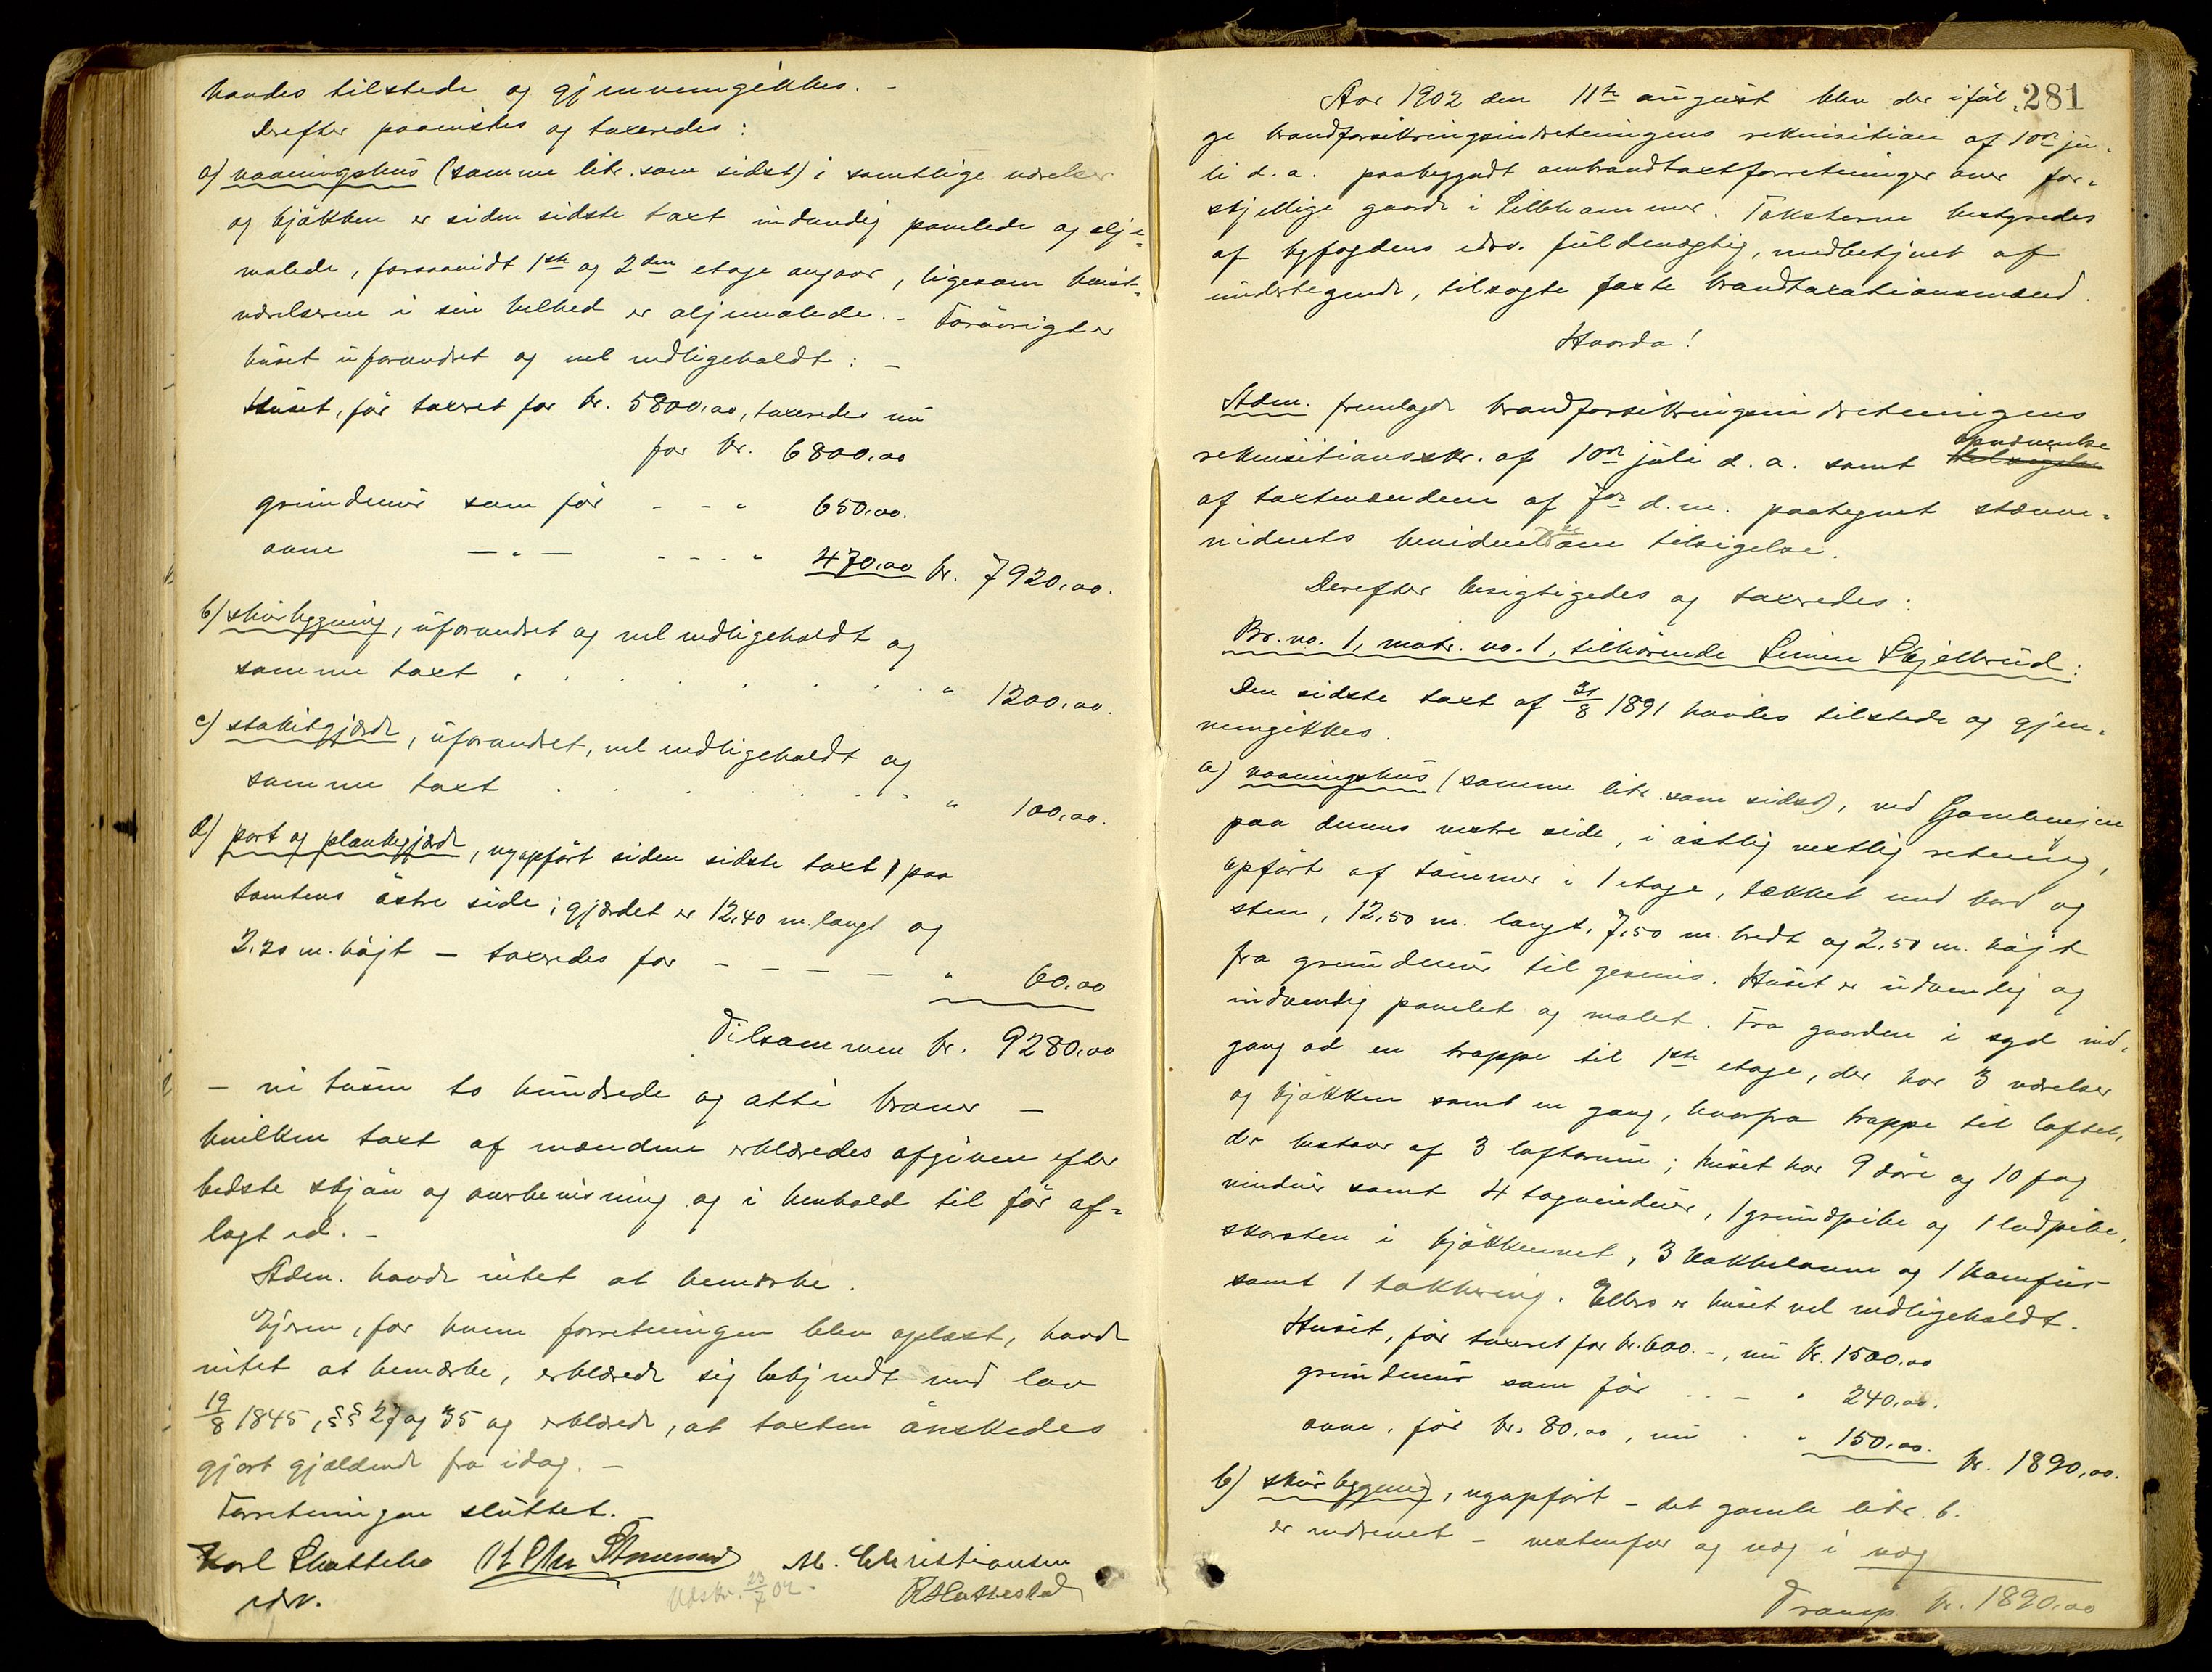 havdes tilstede og gjennemgikkes. -
Derefter paavistes og taxeredes:
a) vaaningshus (samme litr. som sidst) i samtlige værelser
og kjøkken er siden sidste taxt indvendig panelede og olje-
malede, forsaavidt 1ste og 2den etage angaar, ligesom kvist-
værelserne i sin helhed er oljemalede. - Forøvrigt er
huset uforandret og vel vedligeholdt: -
Huset, før taxeret for kr. 5800,00, taxeredes nu
for kr. 6800,00
grundmur som før - - " 650,00.
ovne — " — - - - " 470,00 kr. 7920,00.
b) skurbygning, uforandret og vel vedligeholdt og
samme taxt . . . . . . . " 1200,00.
c) stakitgjærde, uforandret, vel vedligeholdt og
samme taxt . . . . . . . " 100,00.
d) port og plankegjærde, nyopført siden sidste taxt, paa
tomtens østre side; gjærdet er 12,40 m. langt og
2,20 m. højt — taxeredes for - - - - " 60,00
Tilsammen kr. 9280,00
- ni tusen to hundrede og otti kroner -
hvilken taxt af mændene erklæredes afgiven efter
bedste skjøn og overbevisning og i henhold til før af-
lagt ed. -
Adm. havde intet at bemærke.
Ejeren, for hvem forretningen blev oplæst, havde
intet at bemærke, erklærede sig bekjendt med lov
19/8 1845, §§ 27 og 35 og erklærede, at taxten ønskedes
gjort gjældende fra idag. -
Forretningen sluttet.
Karl Skatteba M. Christiansen
edsv. Udskr. 23/7 02.
281
Aar 1902 den 11te august blev der iføl-
ge brandforsikringsindretningens rekvisition af 10de ju-
li d. a. paabegyndt ombrandtaxtforretninger over for-
skjellige gaarde i Lillehammer. Taksterne bestyredes
af byfogdens edsv. fuldmægtig, medbetjent af
undertegnede, tilsagte faste brandtaxationsmænd.
Hvorda!
Adm. fremlagde brandforsikringsindretningens
rekvisitionsskr. af 10de juli d. a. samt opnævnelse
af taxtmændene af 7de d. m. paategnet stævne-
vidnets bevidnelse om tilsigelse.
Derefter besigtigedes og taxeredes:
Br. no. 1, matr. no. 1, tilhørende Simen Skjellerud:
Den sidste taxt af 31/8 1891 havdes tilstede og gjen-
nemgikkes.
a) vaaningshus (samme litr. som sidst), ved Gamlevejen
paa dennes vestre side, i østlig vestlig retning,
opført af tømmer i 1 etage, tækket med bord og
sten, 12,50 m. langt, 7,50 m. bredt og 2,50 m. højt
fra grundmur til gesims. Huset er udvendig og
indvendig panelet og malet. Fra gaarden i syd ind-
gang ad en trappe til 1ste etage, der har 3 værelser
og kjøkken samt en gang, hvorfra trappe til loftet,
der bestaar af 3 loftsrum; huset har 9 døre og 10 fag
vinduer samt 4 tagvinduer, 1 grundpibe og 1 ladpibe,
skorsten i kjøkkenet, 3 kakkelovne og 1 komfur
samt 1 takkering. Ellers er huset vel vedligeholdt.
Huset, før taxeret for kr. 600. -, nu kr. 1500,00
grundmur som før . . - " 240,00.
ovne, før kr. 80,00, nu . " 150,00. kr. 1890,00.
b) skurbygning, nyopført - det gamle litr. b.
er nedrevet - vestenfor og væg i væg
Transp. kr. 1890,00